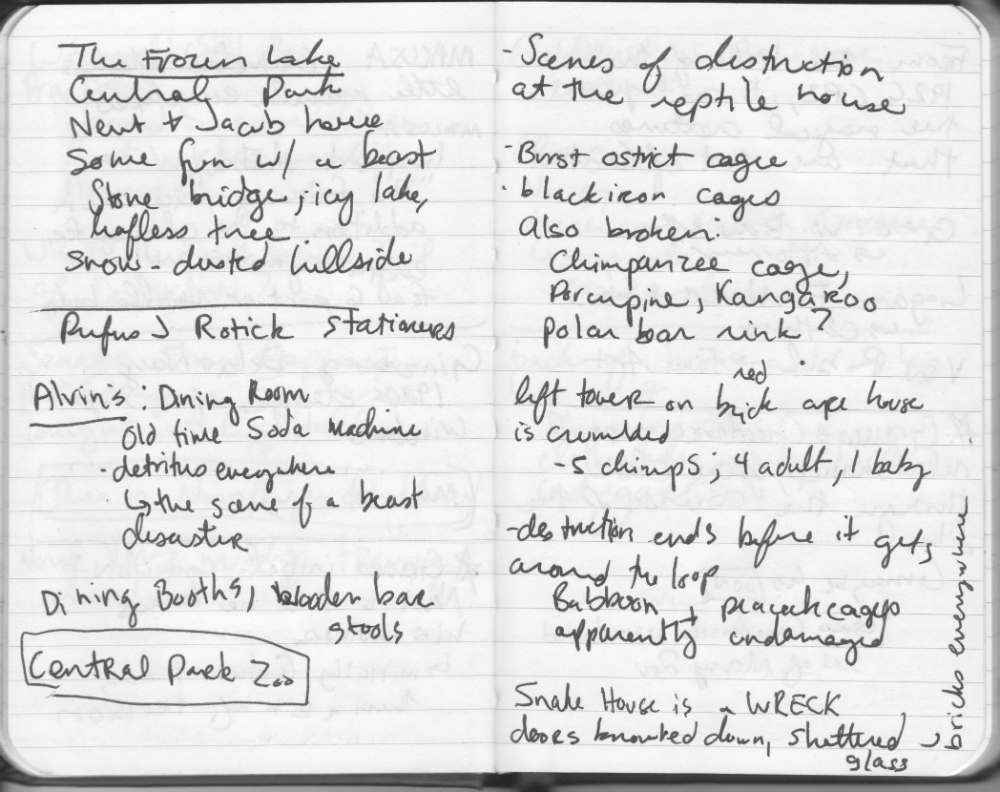 The Frozen Lake
Central Park
Newt + Jacob
Some fun w/ a beast
Stone bridge, icy lake,
leafless tree
snow-dusted hillside
Rufus J Rotick Stationers
Alvin's: Dining Room
Old time Soda machine
· detritus everywhere
↳ the scene of a beast
disaster
Dining Booths, wooden bar
stools
Central Park Zoo
- Scenes of distruction
at the reptile house
- Burst ostrict cage
· black iron cages
also broken:
Chimpanzee cage,
Porcupine, Kangaroo
polar bear rink?
left tower on red brick ape house
is crumbled
- 5 chimps; 4 adult, 1 baby
- destruction ends before it gets
around the loop
Babboon + peacock cages
apparently undamaged
Snake House is a WRECK
doors knocked down, shattered
glass
bricks everywhere